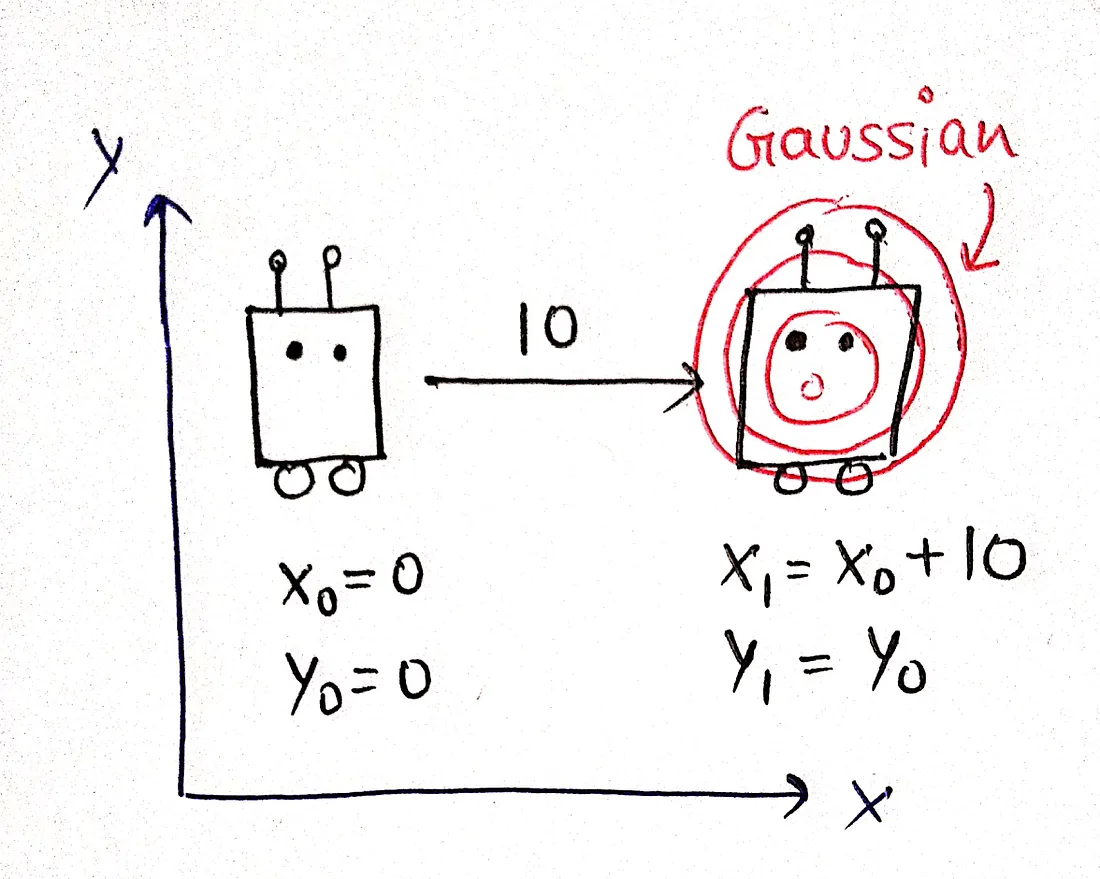 Gaussian
y
10
x₀ = 0
y₀ = 0
x₁ = x₀ + 10
y₁ = y₀
x